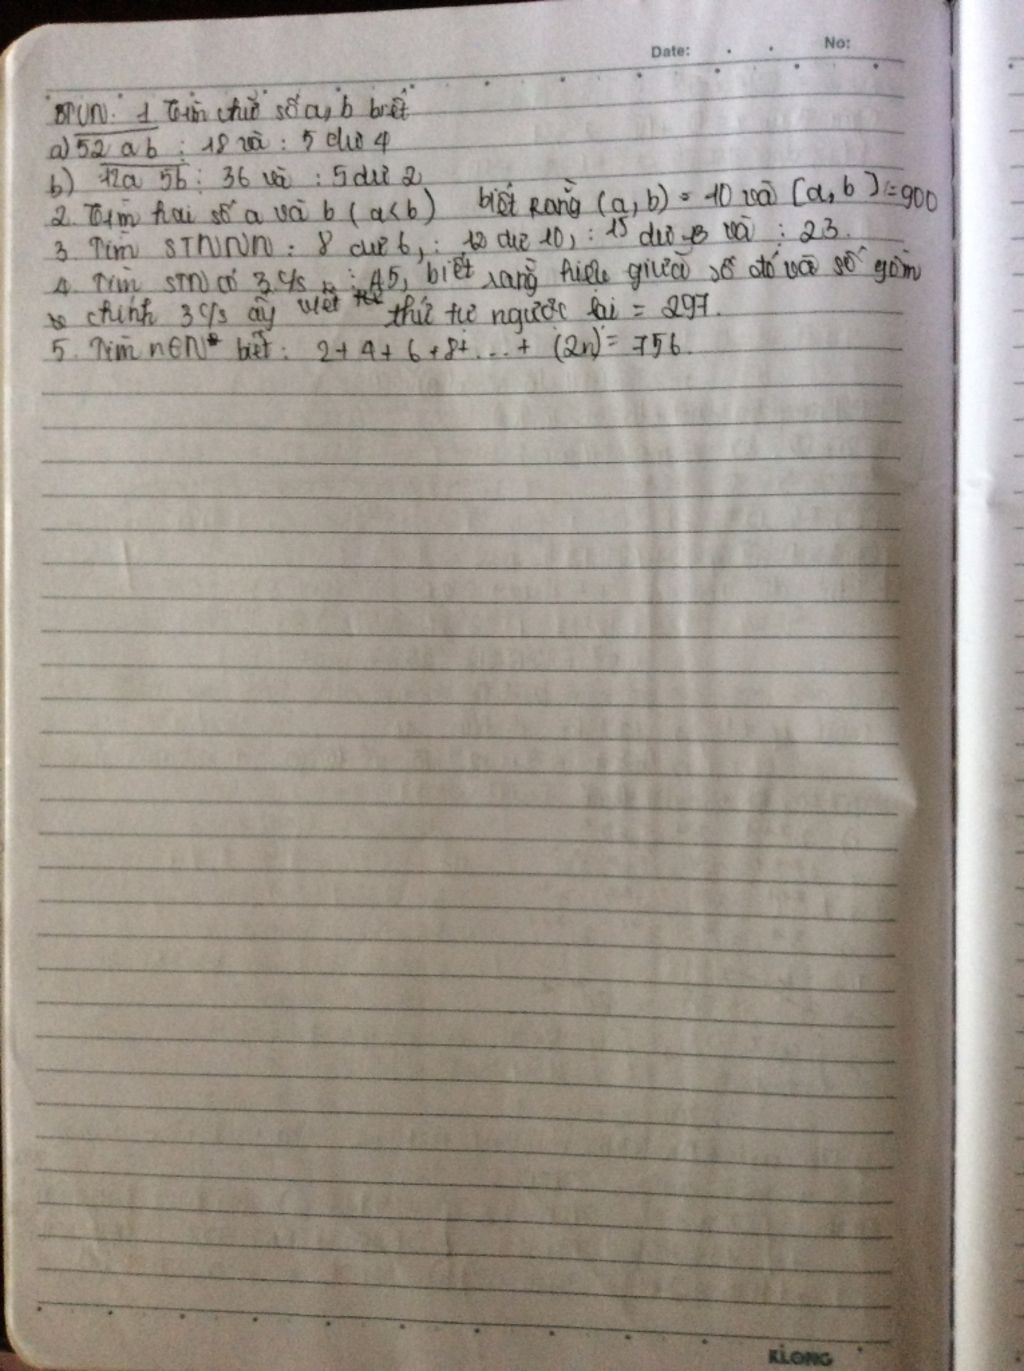 Date: No:
BTVN: 1 Tìm chữ số a, b biết
a) 52 ab : 18 và : 5 dư 4
b) 12a 5b : 36 và : 5 dư 2
2. Tìm hai số a và b (a<b) biết rằng (a, b) = 10 và [a, b] = 900
3. Tìm STNNN : 8 dư 6, : 12 dư 10, : 15 dư 13 và : 23.
4. Tìm STN có 3 c/s : 45, biết rằng hiệu giữa số đó và số gồm
chính 3 c/s ấy viết thứ tự ngược lại = 297.
5. Tìm n∈N* biết : 2+4+6+8+...+ (2n) = 756.
KLONG